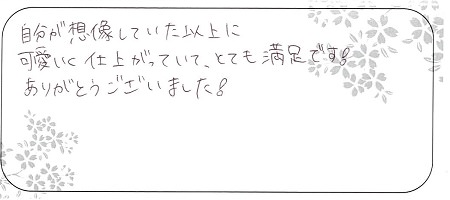 自分が想像していた以上に
可愛いく仕上がっていて、とても満足です!
ありがとうございました!